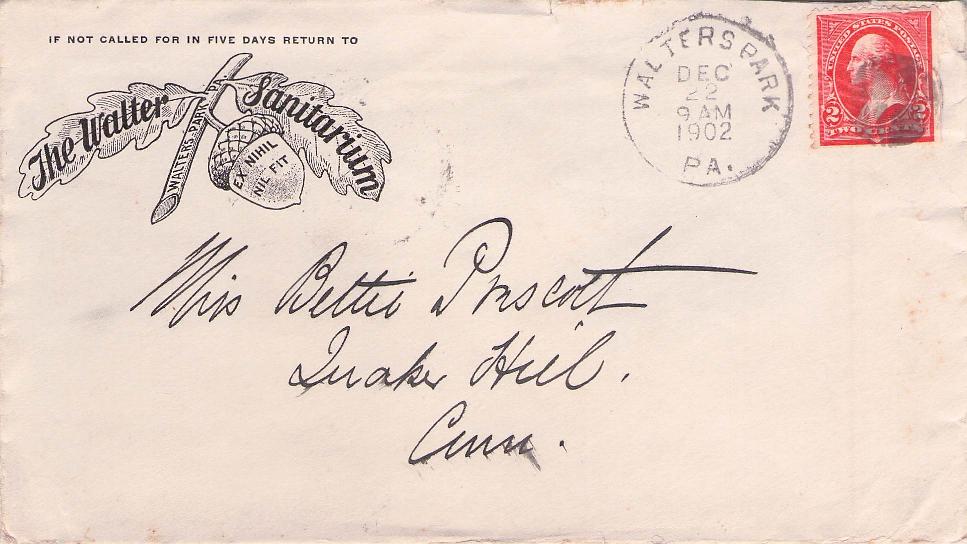 IF NOT CALLED FOR IN FIVE DAYS RETURN TO
The Walter Sanitarium
WALTERS PARK, PA.
EX NIHIL
NIL FIT
WALTERS PARK
DEC
22
9 AM
1902
PA.
UNITED STATES POSTAGE
2 2
TWO CENTS
Miss Bettie Prescott
Quaker Hill.
Conn.